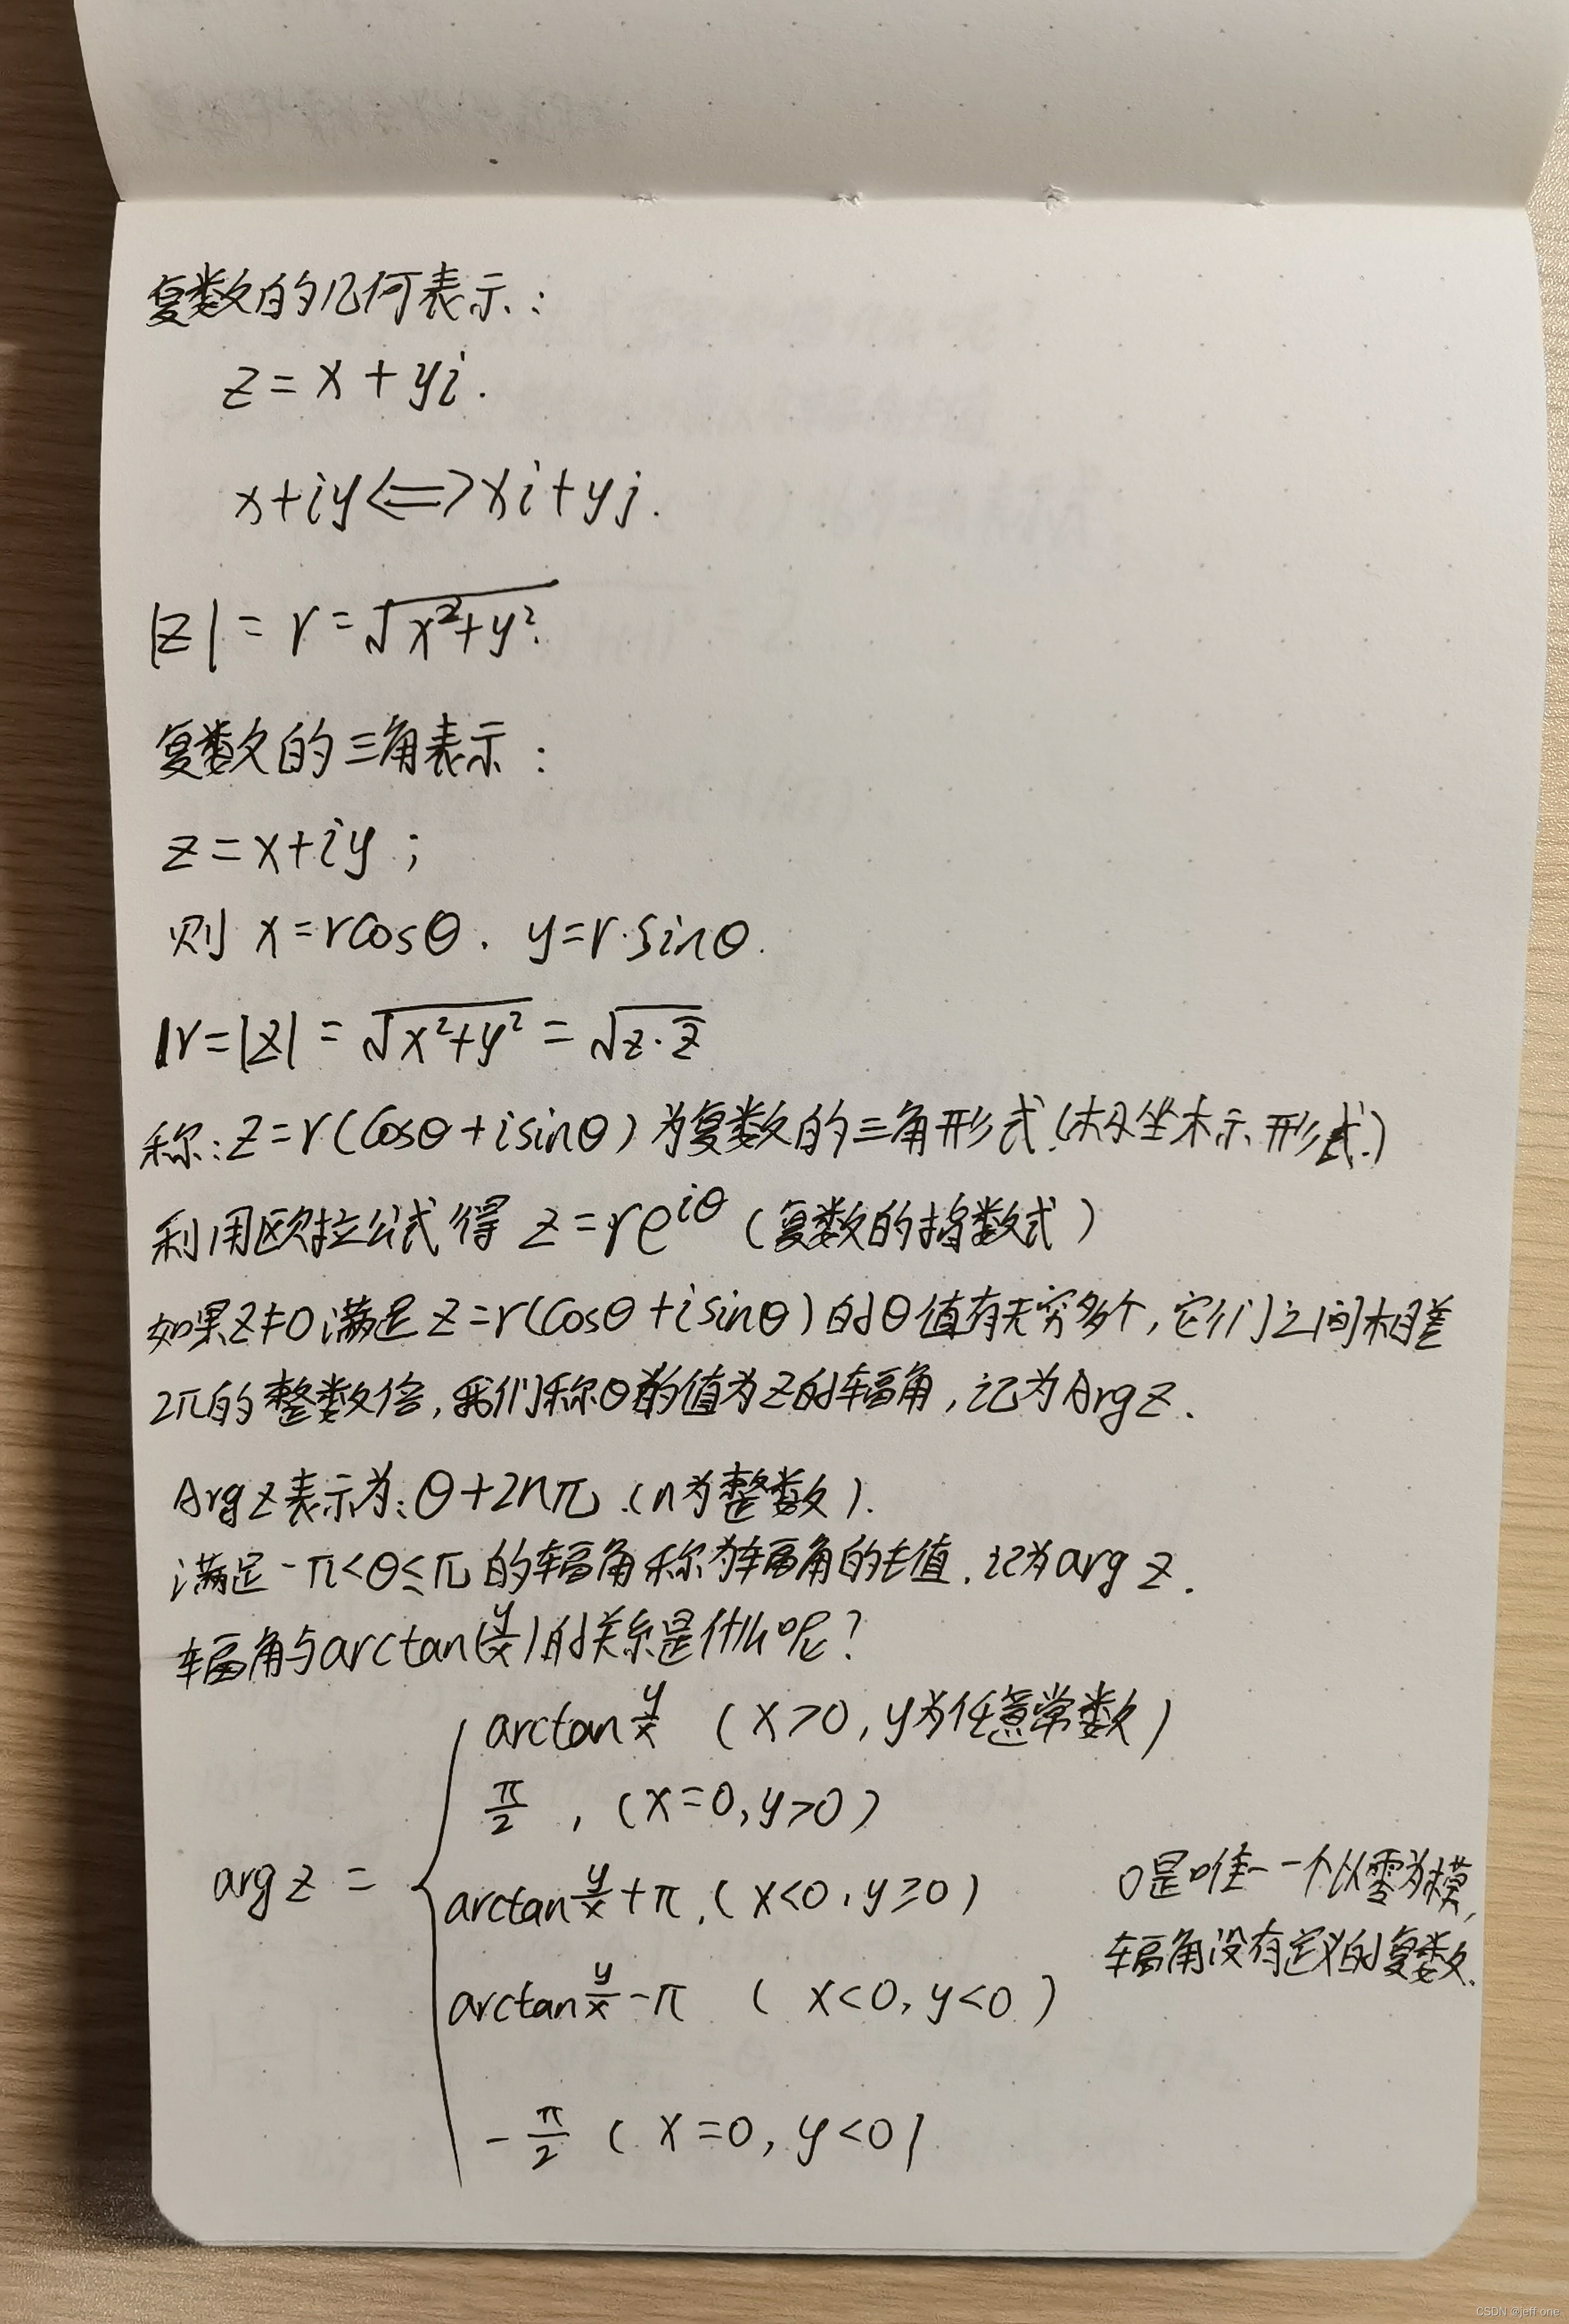 复数的几何表示:
z = x + yi.
x+iy⟺xi+yj.
|z| = r = √(x²+y²).
复数的三角表示:
z=x+iy;
则 x=rcosθ. y=r·sinθ.
r=|z| = √(x²+y²) = √(z·z̄)
称:z=r(cosθ+isinθ)为复数的三角形式.(极坐标形式.)
利用欧拉公式得 z=re^{iθ} (复数的指数式)
如果z≠0满足z=r(cosθ+isinθ)的θ值有无穷多个,它们之间相差
2π的整数倍,我们称θ的值为z的辐角,记为Arg z.
Arg z表示为:θ+2nπ.(n为整数).
满足-π<θ≤π的辐角称为辐角的主值.记为arg z.
辐角与arctan(y/x)的关系是什么呢?
arctan y/x (x>0,y为任意常数)
π/2 , (x=0,y>0)
arg z = {
arctan y/x +π.(x<0,y≥0)
0是唯一一个以零为模,
辐角没有定义的复数.
arctan y/x -π (x<0,y<0)
-π/2 (x=0,y<0)
CSDN @jeff one